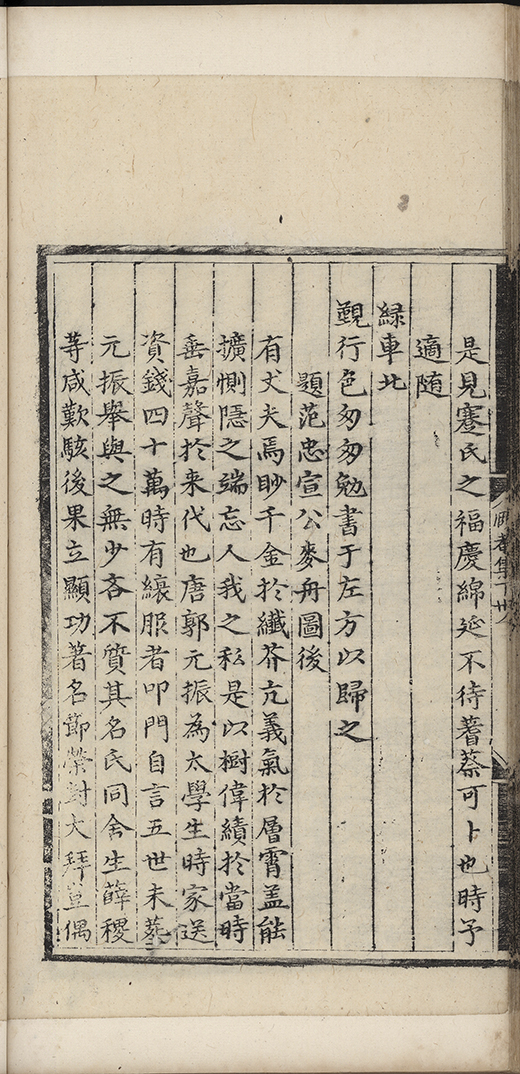 是見蹇氏之福慶綿延不待蓍蔡可卜也時予
適随
緑車北
覲行色匆匆勉書于左方以歸之
題范忠宣公麥舟圖後
有丈夫焉眇千金於纖芥亢義氣於層霄盖能
擴惻隠之端忘人我之私是以樹偉績於當時
垂嘉聲於来代也唐郭元振為太學生時家送
資錢四十萬時有縗服者叩門自言五世未葬
元振舉與之無少吝不質其名氏同舍生薛稷
等咸歎駭後果立顯功著名節榮封大拜豈偶